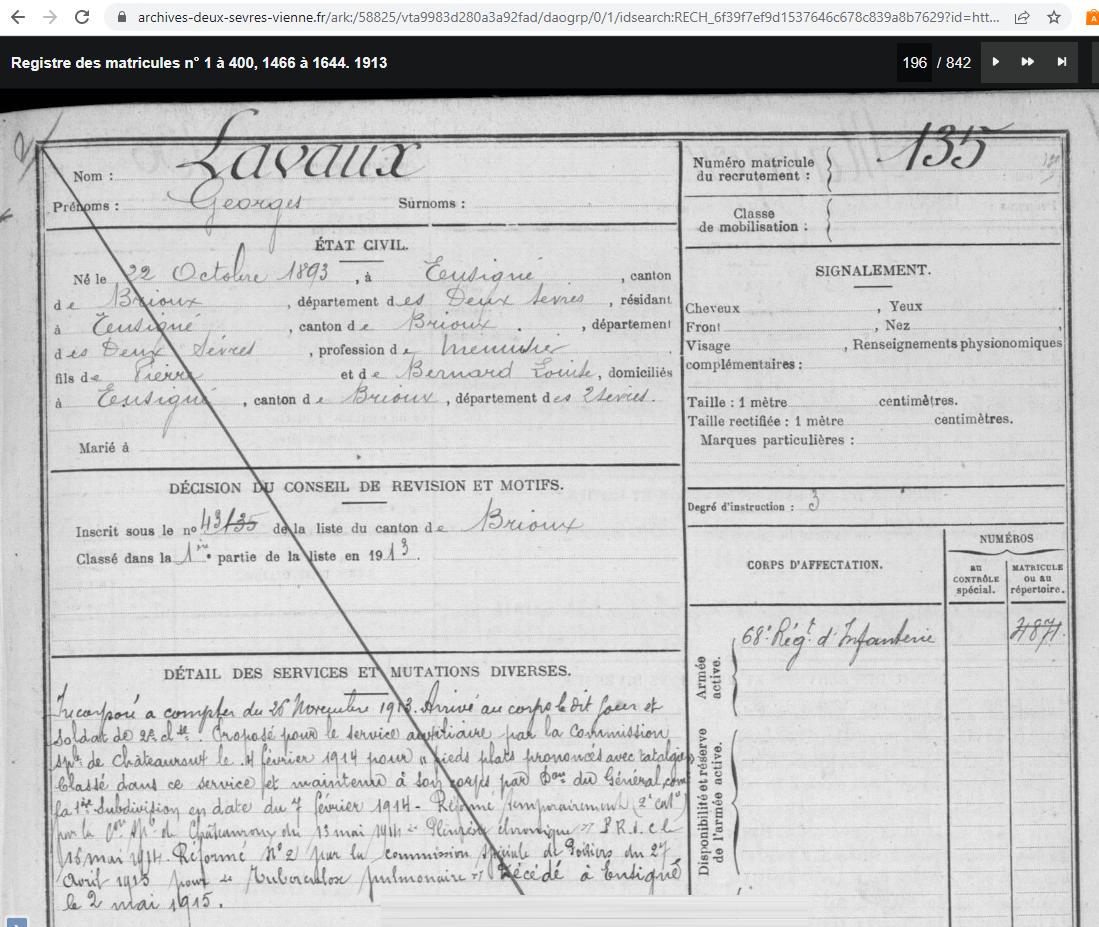 archives-deux-sevres-vienne.fr/ark:/58825/vta9983d280a3a92fad/daogrp/0/1/idsearch:RECH_6f39f7ef9d1537646c678c839a8b7629?id=htt...
Registre des matricules n° 1 à 400, 1466 à 1644. 1913
196 / 842
Nom : Lavaux
Prénoms : Georges Surnoms :
Numéro matricule du recrutement : 135
Classe de mobilisation :
ÉTAT CIVIL.
Né le 22 Octobre 1893, à Ensigné, canton
de Brioux, département des Deux Sèvres, résidant
à Ensigné, canton de Brioux, département
des Deux Sèvres, profession de menuisier
fils de Pierre et de Bernard Louise, domiciliés
à Ensigné, canton de Brioux, département des 2 Sèvres.
Marié à
SIGNALEMENT.
Cheveux , Yeux
Front , Nez ,
Visage , Renseignements physionomiques
complémentaires :
Taille : 1 mètre centimètres.
Taille rectifiée : 1 mètre centimètres.
Marques particulières :
Degré d'instruction : 3
DÉCISION DU CONSEIL DE REVISION ET MOTIFS.
Inscrit sous le no 43 135 de la liste du canton de Brioux
Classé dans la 1re partie de la liste en 1913.
CORPS D'AFFECTATION.
NUMÉROS
au CONTRÔLE spécial.
MATRICULE ou au répertoire.
Armée active.
68e Régt d'Infanterie
4871
Disponibilité et réserve de l'armée active.
DÉTAIL DES SERVICES ET MUTATIONS DIVERSES.
Incorporé a compter du 26 Novembre 1913. Arrivé au corps le dit jour et
soldat de 2e clse. Proposé pour le service auxiliaire par la Commission
sple de Châteauroux le 4 février 1914 pour "pieds plats prononcés avec
Classé dans ce service et maintenu à son corps par Don du Général comt
la 1re Subdivision en date du 7 février 1914 - Réformé temporairement (2e cat)
par la Con sple de Châteauroux du 13 mai 1914 Pleurésie chronique
16 mai 1914. Réformé N°2 par la commission spéciale de Poitiers du 27
Avril 1915 pour Tuberculose pulmonaire Décédé à Ensigné
le 2 mai 1915.